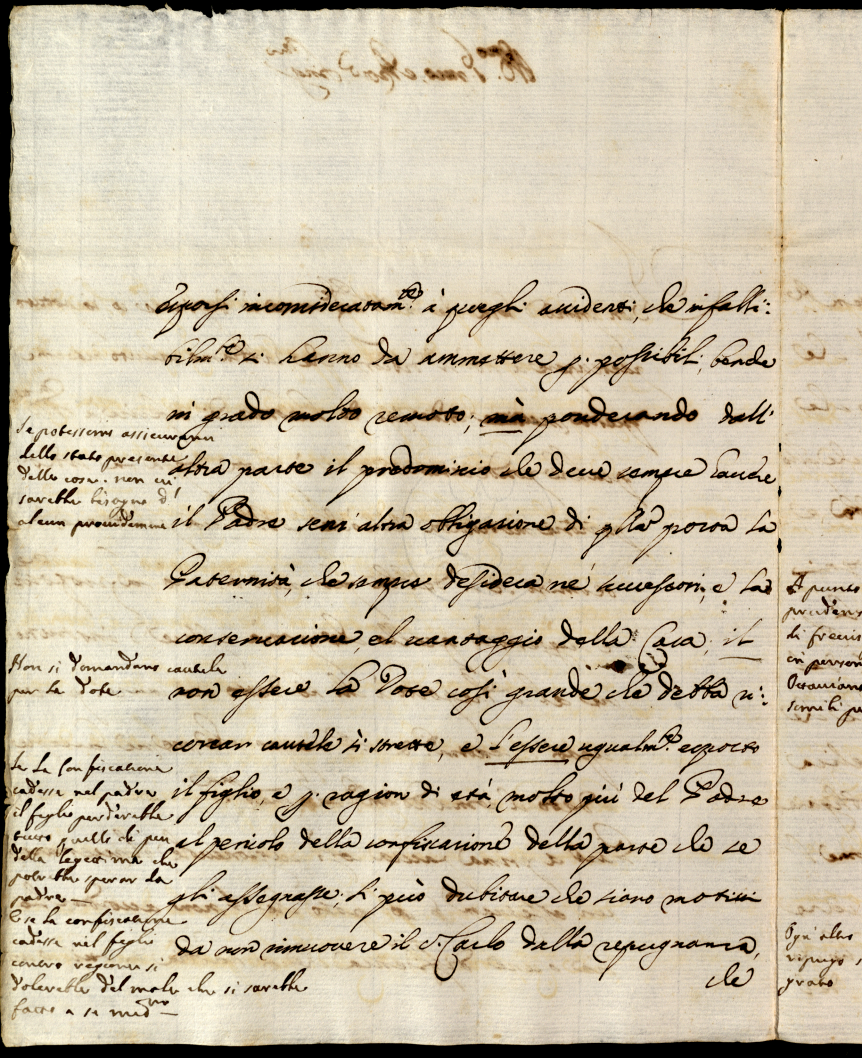 esporsi inconsideratam.te à quegli accidenti, che infalli:
bilm.te si hanno da ammettere p. possibili, benche
in grado molto remoto; mà ponderando dall'
altra parte il predominio che deve sempre havere
il Padre senz'altra obbligazione di q.lla porta la
Paternità, che sempre desidera né successori, e la
conservazione, el vantaggio della Casa, il
non essere la Dote così grande che debba ri:
cercar cautele si strette, e l'essere ugualm.te esposto
il figlio, e p. ragion di età molto più del Padre
al pericolo della confiscazione della parte che se
gli assegnasse, si può dubitare che siano motivi
da non rimuovere il S. Carlo dalla repugnanza,
che
Se potessimo assicurarci
dello stato presente
delle cose. non ci
sarebbe bisogno d'
alcun provedimento
Non si domandano cautele
per la dote
Se la confiscazione
cadesse nel padre
il figlio perderebbe
tutto quello di più
della legittima che
potrebbe sperar dal
padre —
E se la confiscazione
cadesse nel figlio
contro ragione si
dolerebbe del male che si sarebbe
fatto a se med.mo —
A punto
prudenz
di
in person
Ottaviano
simili p
Ogni altro
ripiego s
grato